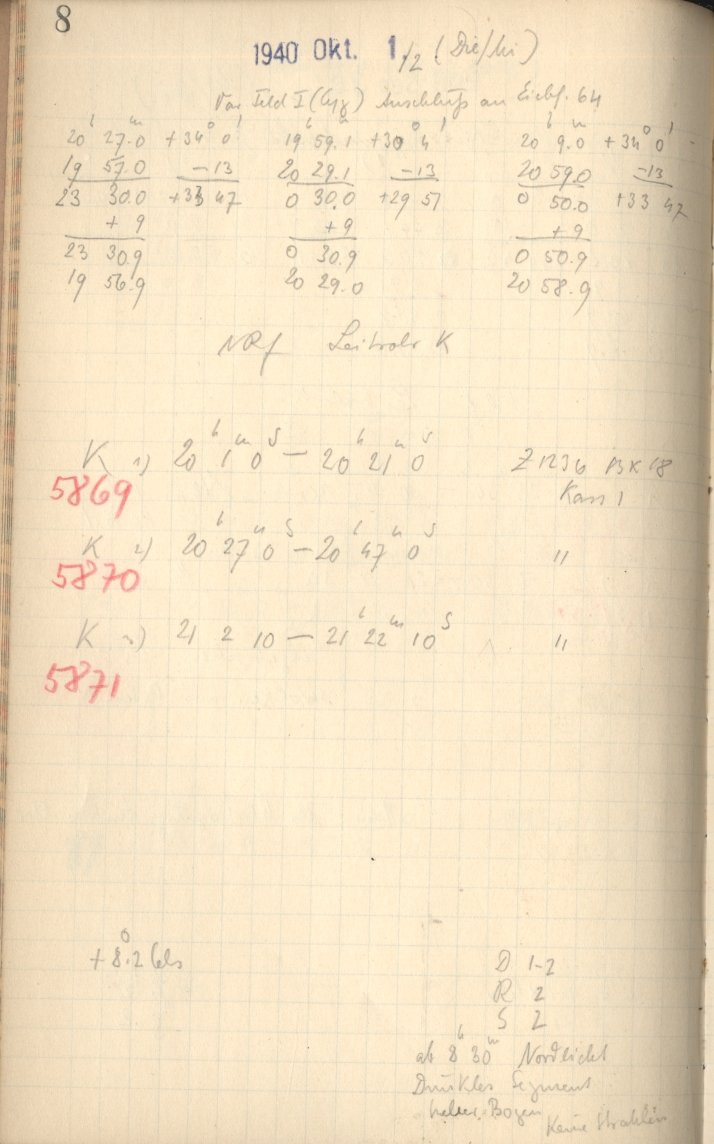 8
1940 Okt. 1./2 (Die/Mi)
Var Feld I (Cyg) Anschluß an Eichf. 64
20h 27m.0 +34° 0' 19h 59m.1 +30° 4' 20h 9m.0 +34° 0'
19 57.0 -13 20 29.1 -13 20 59.0 -13
23 30.0 +33 47 0 30.0 +29 51 0 50.0 +33 47
+ 9 + 9 + 9
23 30.9 0 30.9 0 50.9
19 56.9 20 29.0 20 58.9
Leitrohr K
K 1) 20h 1m 0s — 20h 21m 0s Z 1236
5869 Kass 1
K 2) 20h 27m 0s — 20h 47m 0s "
5870
K 3) 21 2 10 — 21h 22m 10s "
5871
+8°.2 Cels D 1-2
R 2
S 2
ab 8h 30m Nordlicht
Dunkles Segment
heller Bogen Keine Strahlen